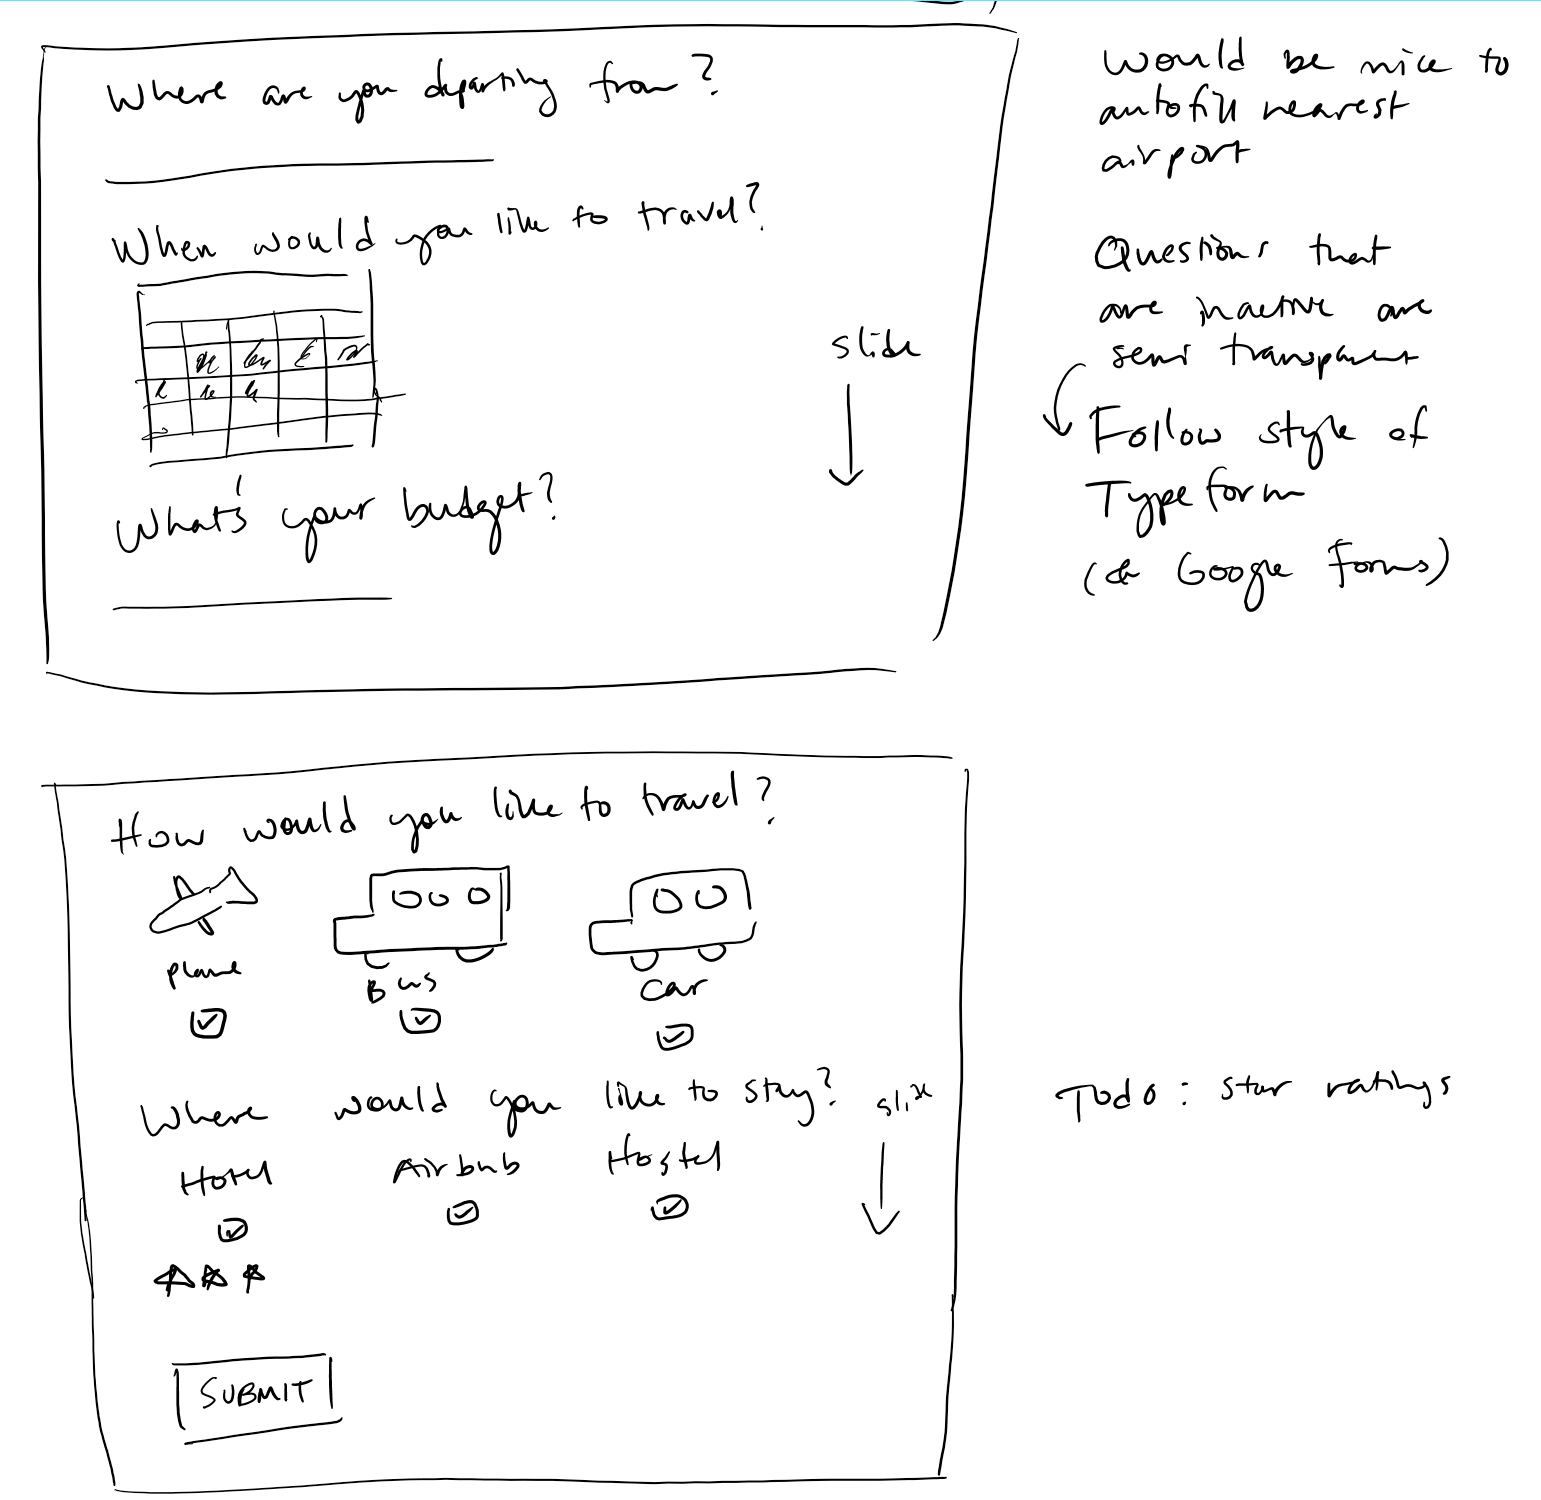 Where are you departing from?
When would you like to travel?
slide
What's your budget?
Would be nice to
autofill nearest
airport
Questions that
are inactive are
semi transparent
Follow style of
Typeform
(& Google Forms)
How would you like to travel?
plane
Bus
Car
Where would you like to stay?
slide
Hotel
Airbnb
Hostel
SUBMIT
Todo: star ratings